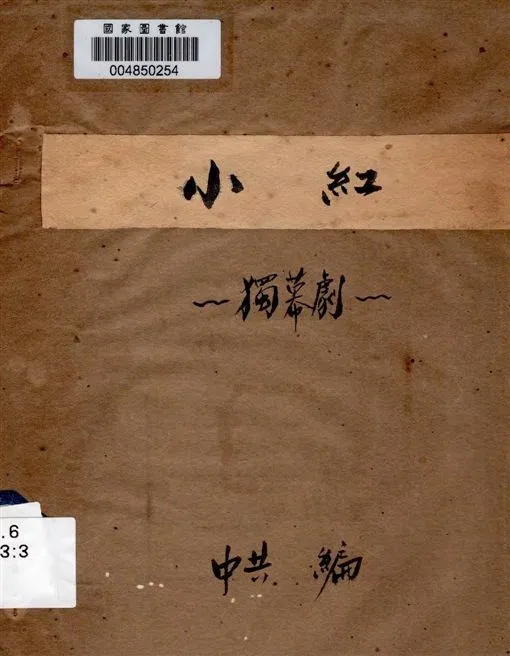 國家圖書館
004850254
小紅
~獨幕劇~
中共 編
.6
3:3